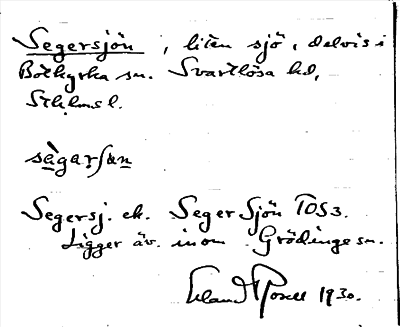 Segersjön, liten sjö, delvis i
Botkyrka sn. Svartlösa hd,
Sthlms l.
sègarʃɯn
Segersj. ek. Seger Sjön TOS3.
Ligger äv. inom Grödinge sn.
Erland Rosell 1930.